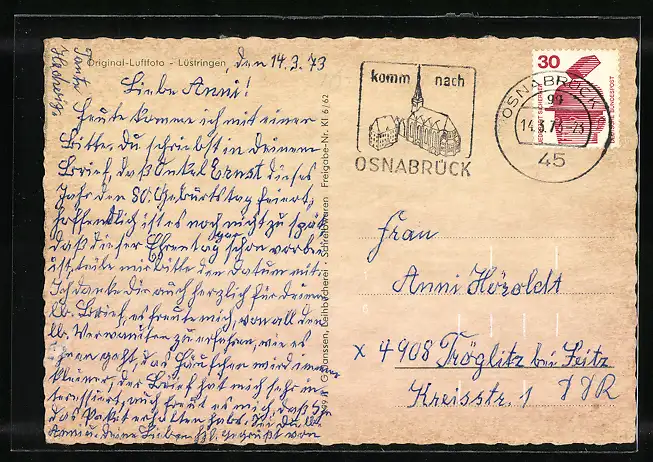 Original-Luftfoto - Lüstringen
den 14.3.73
Liebe Anni!
Heute komme ich mit einer
Bitte. Du schriebst in Deinem
Brief, daß Onkel Ernst dieses
Jahr den 80. Geburtstag feiert,
hoffentlich ist es noch nicht zu spät
daß dieser Ehrentag schon vorbei
ist, teile mir bitte den Datum mit.
Ich danke Dir auch herzlich für Deinen
lb. Brief, es freute mich, von all den
lb. Verwandten zu erfahren, wie es
Ihnen geht, das Häufchen wird immer
kleiner, der Brief hat mich sehr in-
teressiert, auch freut es mich, daß Ihr
das Paket erhalten habt. Sei Du lb.
Anni u. Deine Lieben hzl. gegrüßt von
Tante
Hedwig.
Schreibwaren Freigabe-Nr. Kl 6/62
komm nach
OSNABRÜCK
OSNABRÜCK
14.3.73
45
30
DEUTSCHE BUNDESPOST
Frau
Anni Höroldt
x 4908 Tröglitz bei Zeitz
Kreisstr. 1 DDR